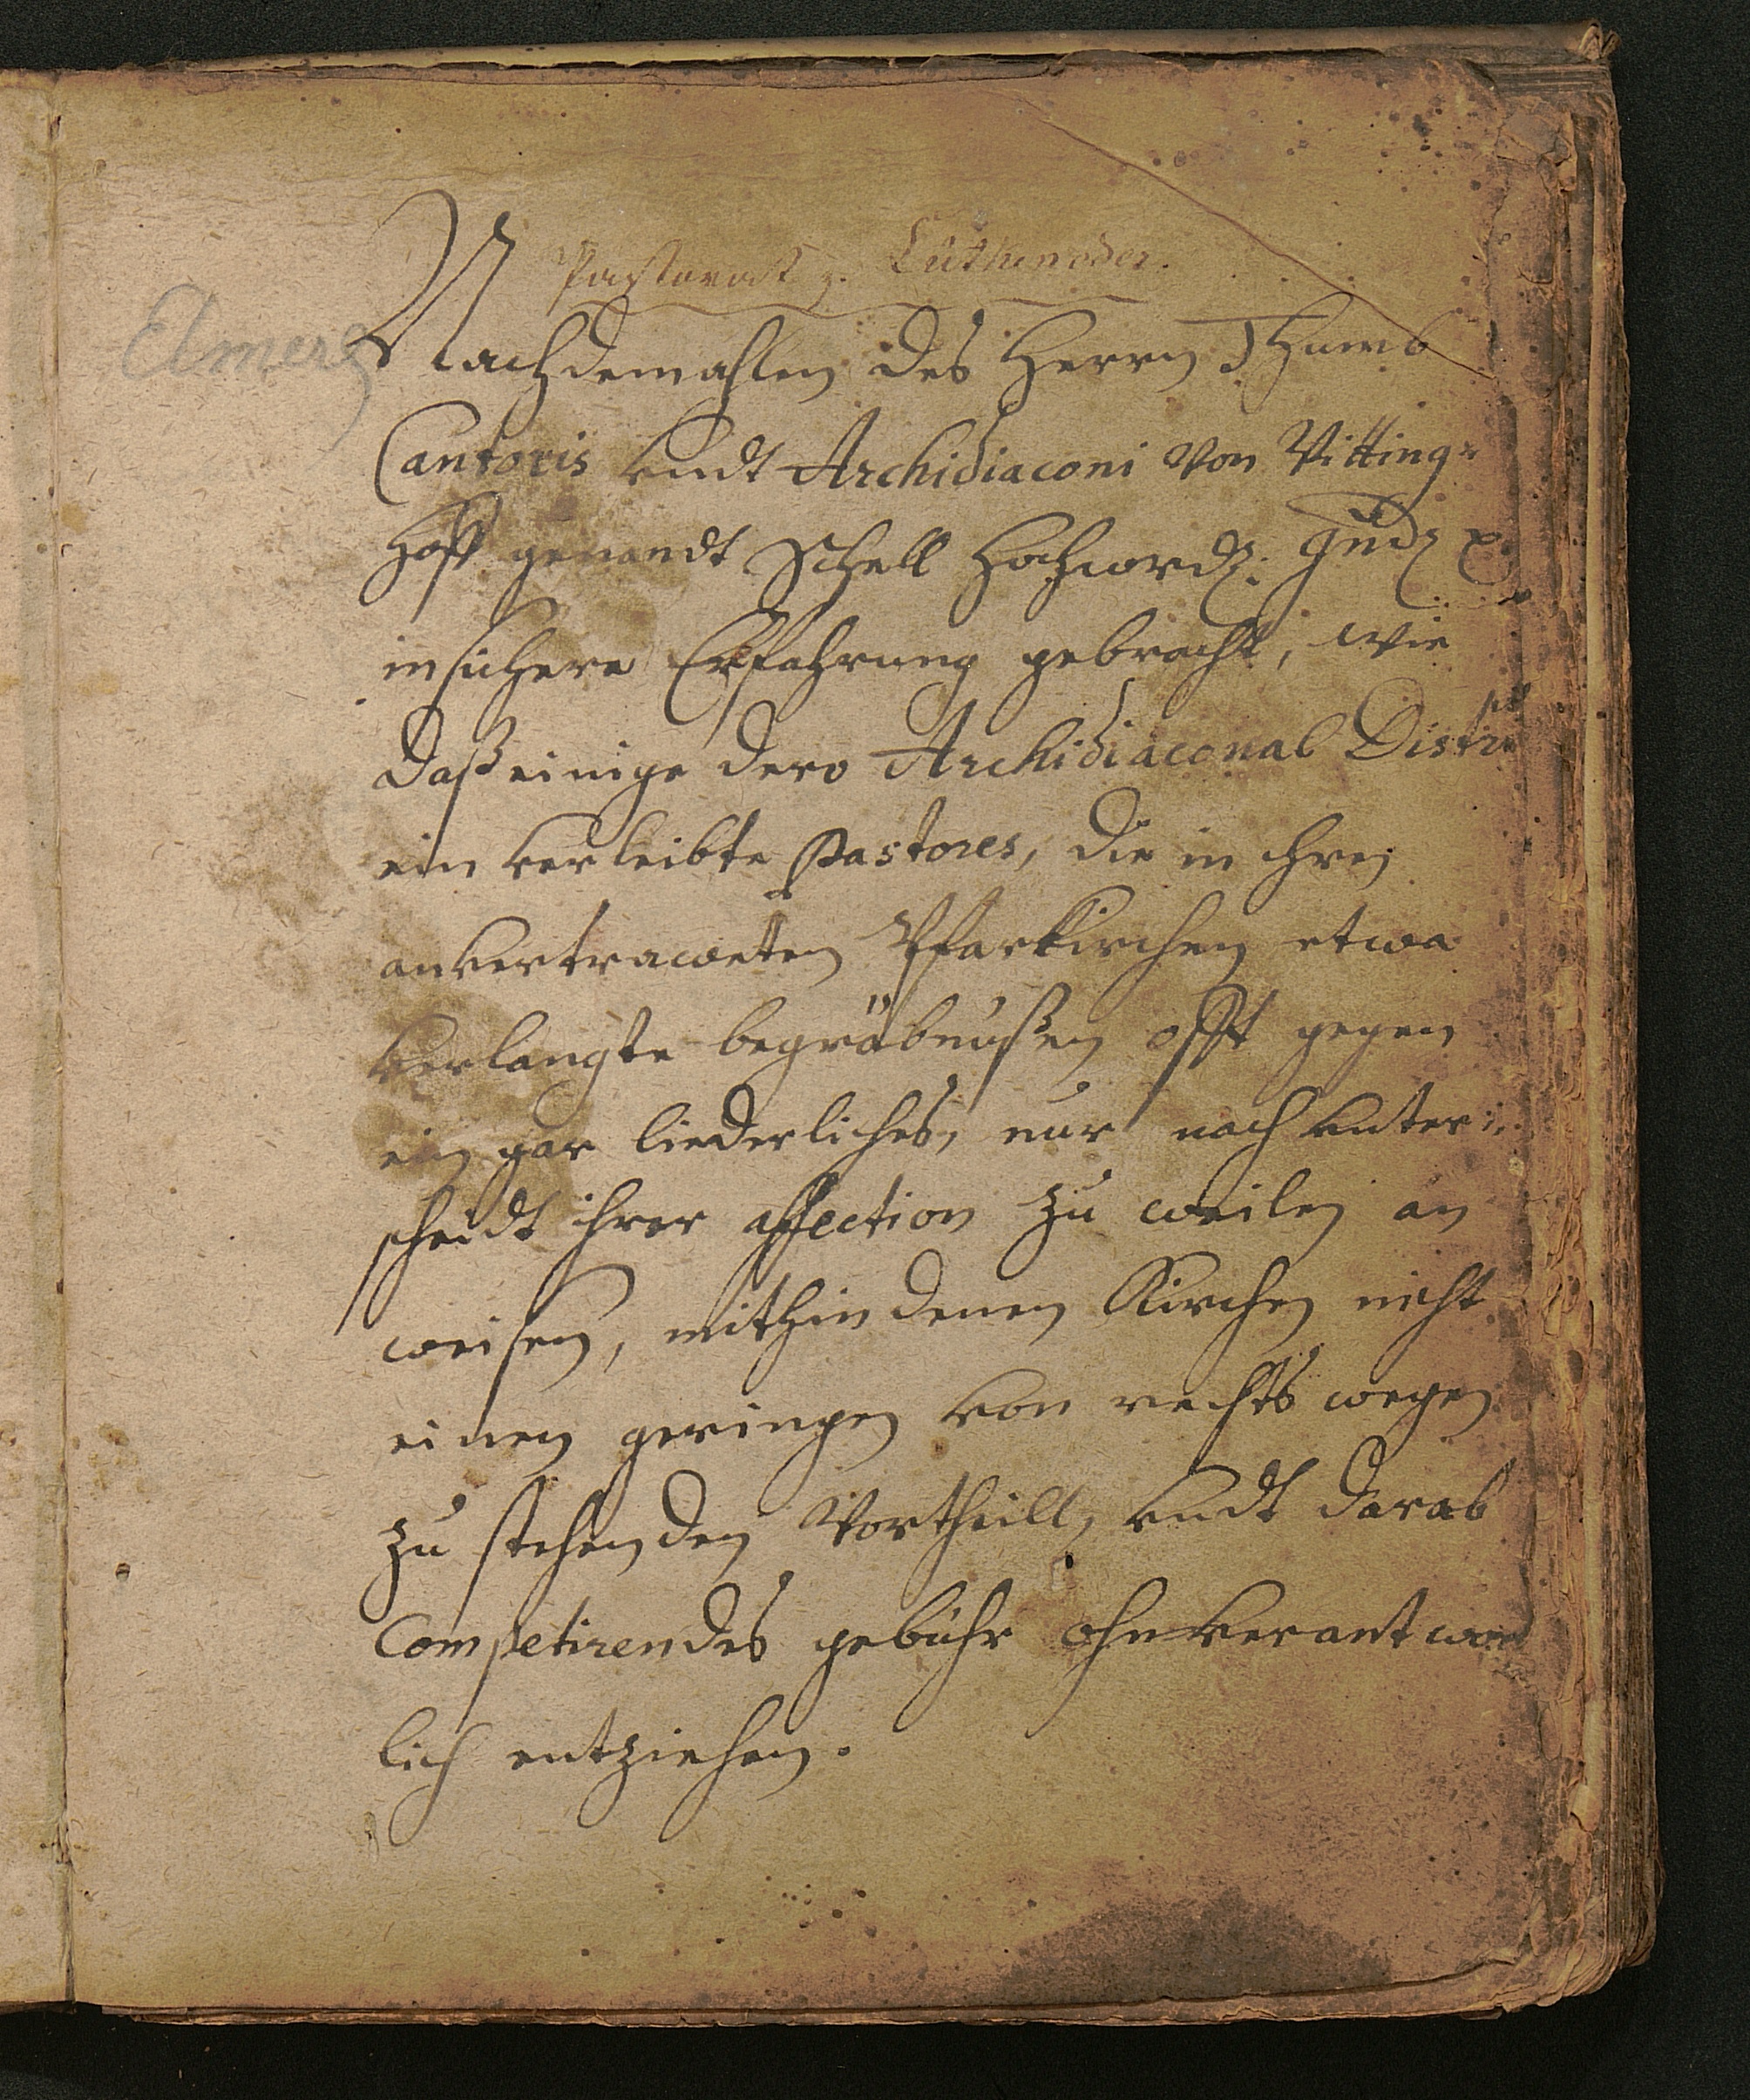 Pastorat z. Lüthenoder.
Elmer
Nachdemahlen des Herrn Thumb
Cantoris undt Archidiaconi von Vitting-
hoff genandt Schell Hochwrdg. Gndg
in sichere Erfahrung gebracht, wie
daß einige dero Archidiaconal District
ein verleibte Pastores, die in ihren
anvertraweten Pfarkirchen etwa
verlangte begräbnußen offt gegen
ein gar liederliches, nur nach unter=
scheidt ihrer affection zu weilen an
weisen, mithin denen Kirchen nicht
einen geringen von rechts wegen
zu stehenden Vortheill, undt darab
Competirendes gebühr ohnverantwort
lich entziehen.